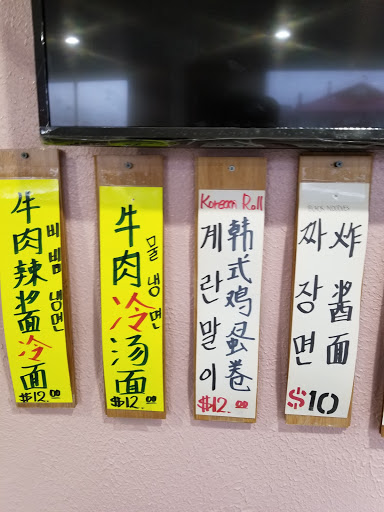 牛肉辣酱冷面
비빔냉면
$12.00
牛肉冷汤面
물냉면
$12.00
Korean Roll
계란말이
韩式鸡蛋卷
$12.00
짜장면
炸酱面
$10